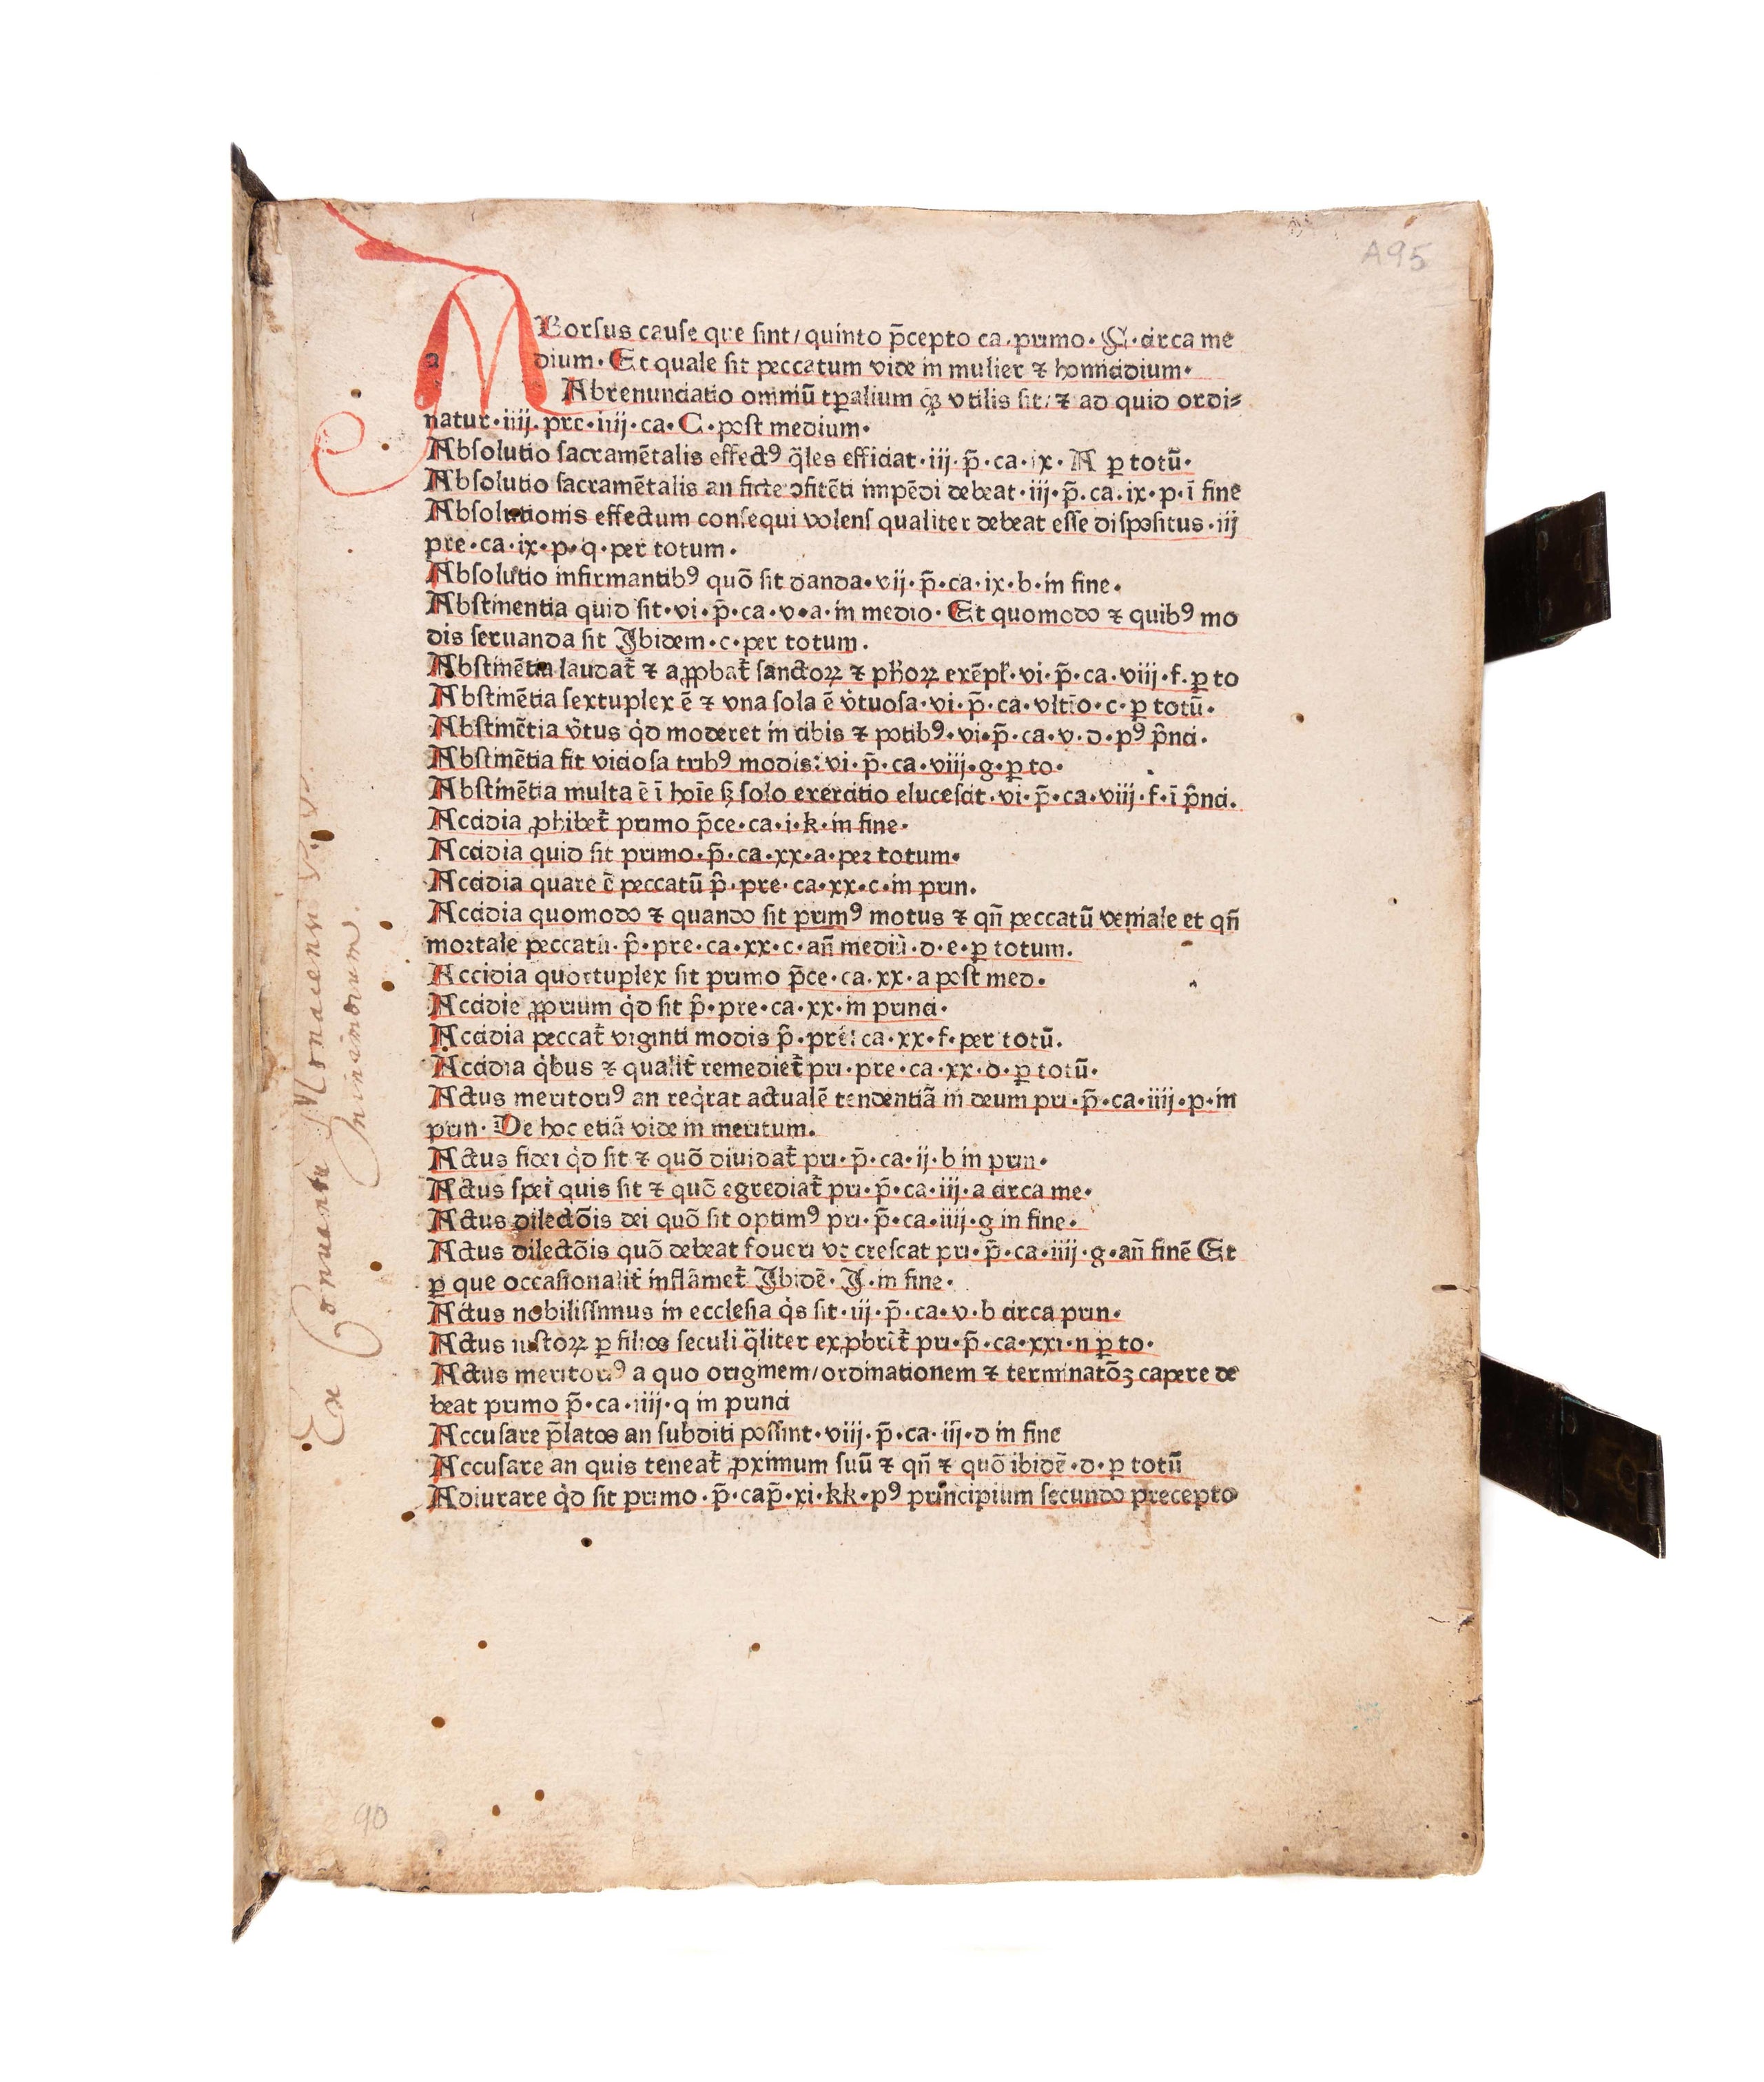 A95
Borsus cause que sint/quinto p̄cepto ca.primo. C.circa me
dium. Et quale sit peccatum vide in mulier ⁊ homicidium.
Abrenunciatio omniū tꝑalium qꝫ vtilis sit/⁊ ad quid ordi⸗
natur.iiij.pre.iiij.ca.C.post medium.
Absolutio sacramētalis effectꝰ q̄les efficiat.iij.p̄.ca.ix.A ꝑ totū.
Absolutio sacramētalis an ficte ↄfitēti impēdi debeat.iij.p̄.ca.ix.p.ī fine
Absolutionis effectum consequi volens qualiter debeat esse dispositus.iij
pre.ca.ix.p.q.per totum.
Absolutio infirmantibꝰ quō sit danda.vij.p̄.ca.ix.b.in fine.
Abstinentia quid sit.vi.p̄.ca.v.a.in medio. Et quomodo ⁊ quibꝰ mo
dis seruanda sit Ibidem.c.per totum.
Abstinētia laudat̄ ⁊ aꝓpbat̄ sanctoꝝ ⁊ ph̄oꝝ exēpl̄.vi.p̄.ca.viij.f.ꝑ to
Abstinētia sextuplex ē ⁊ vna sola ē v̇tuosa.vi.p̄.ca.vltīo.c.ꝑ totū.
Abstinētia v̇tus q̇d moderet in cibis ⁊ potibꝰ.vi.p̄.ca.v.d.pꝰ p̄nci.
Abstinētia fit viciosa tribꝰ modis:vi.p̄.ca.viij.g.ꝑ to.
Abstinētia multa ē ī hoīe sꝫ solo exercitio elucescit.vi.p̄.ca.viij.f.ī p̄nci.
Accidia ꝓhibet̄ primo p̄ce.ca.i.k.in fine.
Accidia quid sit primo.p̄.ca.xx.a.per totum.
Accidia quare ē peccatū p̄.pre.ca.xx.c.in prin.
Accidia quomodo ⁊ quando sit primꝰ motus ⁊ qn̄ peccatū veniale et qn̄
mortale peccatū.p̄.pre.ca.xx.c.an̄ mediū.d.e.ꝑ totum.
Accidia quottuplex sit primo p̄ce.ca.xx.a post med.
Accidie ꝓprium q̇d sit p̄.pre.ca.xx.in princi.
Accidia peccat̄ viginti modis p̄.pre.ca.xx.f.per totū.
Accidia q̇bus ⁊ qualit̄ remediet̄ pri.pre.ca.xx.d.ꝑ totū.
Actus meritoriꝰ an req̇rat actualē tendentiā in deum pri.p̄.ca.iiij.p.in
prin. De hoc etiā vide in meritum.
Actus fidei q̇d sit ⁊ quō diuidat̄ pri.p̄.ca.ij.b in prin.
Actus spei quis sit ⁊ quō egrediat̄ pri.p̄.ca.iij.a circa me.
Actus dilectōis dei quō sit optimꝰ pri.p̄.ca.iiij.g in fine.
Actus dilectōis quō debeat foueri vt crescat pri.p̄.ca.iiij.g.an̄ finē Et
ꝑ que occasionalit̄ inflāmet̄ Ibidē.I.in fine.
Actus nobilissimus in ecclesia q̇s sit.iij.p̄.ca.v.b circa prin.
Actus iustoꝝ ꝑ filios seculi q̄liter exꝓbrēt̄ pri.p̄.ca.xxi.n ꝑ to.
Actus meritoriꝰ a quo originem/ordinationem ⁊ terminatōꝫ capere de
beat primo p̄.ca.iiij.q in princi
Accusare p̄latos an subditi possint.viij.p̄.ca.iij.d in fine
Accusare an quis teneat̄ ꝓximum suū ⁊ qn̄ ⁊ quō ibidē.d.ꝑ totū
Adiurare q̇d sit primo.p̄.cap̄.xi.kk.pꝰ principium secundo precepto
Ex Conuentu Monacensi
90